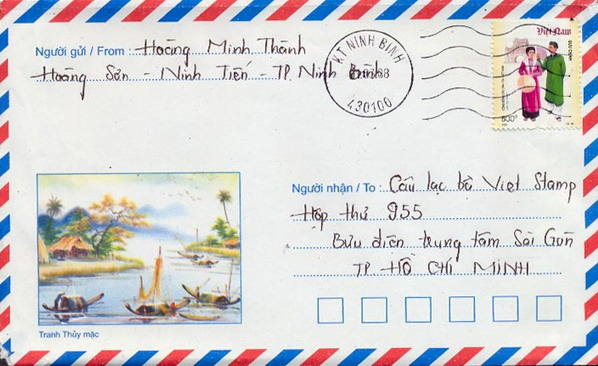 Người gửi / From : Hoàng Minh Thành
Hoàng Sơn - Ninh Tiến - TP Ninh Bình
KT NINH BINH
430100
Việt Nam
BƯU CHÍNH
800đ
Người nhận / To : Câu lạc bộ Viet Stamp
Hộp thư 955
Bưu điện trung tâm Sài Gòn
TP HỒ CHÍ MINH
Tranh Thủy mặc